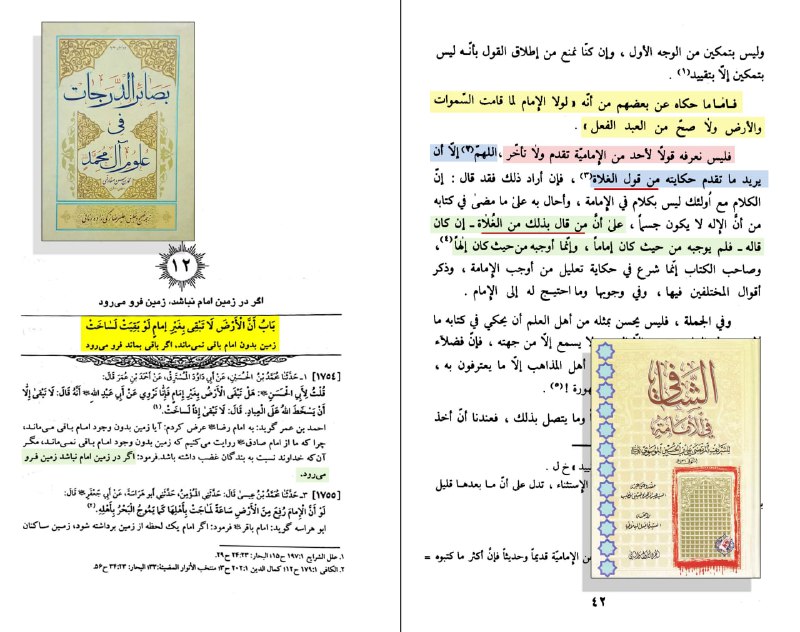 بصائر الدرجات
في
علوم آل محمد
۱۲
اگر در زمین امام نباشد، زمین فرو می‌رود
بَابُ أَنَّ الْأَرْضَ لَا تَبْقَى بِغَيْرِ إِمَامٍ لَوْ بَقِيَتْ لَسَاخَتْ
زمین بدون امام باقی نمی‌ماند. اگر باقی بماند فرو می‌رود
[۱۷۵۴] ۱ـ حَدَّثَنَا مُحَمَّدُ بْنُ الْحُسَيْنِ، عَنْ أَبِي دَاوُدَ الْمُسْتَرِقِّ، عَنْ أَحْمَدَ بْنِ عُمَرَ قَالَ:
قُلْتُ لِأَبِي الْحَسَنِ: هَلْ تَبْقَى الْأَرْضُ بِغَيْرِ إِمَامٍ فَإِنَّا نَرْوِي عَنْ أَبِي عَبْدِ اللهِ أَنَّهُ قَالَ: لَا تَبْقَى إِلَّا
أَنْ يَسْخَطَ اللهُ عَلَى الْعِبَادِ. قَالَ: لَا تَبْقَى إِذاً لَسَاخَتْ. (۱)
احمد بن عمر گوید: به امام رضا عرض کردم: آیا زمین بدون وجود امام باقی می‌ماند،
چرا که ما از امام صادق روایت می‌کنیم که زمین بدون وجود امام باقی نمی‌ماند، مگر
آن که خداوند نسبت به بندگان غضب داشته باشد. فرمود: اگر در زمین امام نباشد زمین فرو
می‌رود.
[۱۷۵۵] ۳ـ حَدَّثَنَا مُحَمَّدُ بْنُ عِيسَى قَالَ: حَدَّثَنِي الْمُؤْمِنُ، حَدَّثَنِي أَبُو هَرَاسَةَ، عَنْ أَبِي جَعْفَرٍ قَالَ:
لَوْ أَنَّ الْإِمَامَ رُفِعَ مِنَ الْأَرْضِ سَاعَةً لَمَاجَتْ بِأَهْلِهَا كَمَا يَمُوجُ الْبَحْرُ بِأَهْلِهِ. (۲)
ابو هراسه گوید: امام باقر فرمود: اگر امام یک لحظه از زمین برداشته شود، زمین ساکنان
۱. علل الشرایع ۱: ۱۹۷ ح۱۵؛ البحار: ۲۳: ۲۴ ح۲۹.
۲. الکافی ۱: ۱۷۹ ح۱۲؛ کمال الدین ۱: ۲۰۲ ح۳؛ منتخب الأنوار المضیئة: ۳۳؛ البحار ۲۳: ۳۴ ح۵۶.
وليس بتمكين من الوجه الأول ، وإن كنّا نمنع من إطلاق القول بأنّه ليس
بتمكين إلّا بتقييد(١) .
فـامّـا ما حكاه عن بعضهم من أنّه « لولا الإمام لما قامت السّموات
والأرض ولا صحّ من العبد الفعل » .
فليس نعرفه قولاً لأحد من الإماميّة تقدم ولا تأخّر ، اللهمّ(٢) إلّا أن
يريد ما تقدم حكايته من قول الغلاة(٣) ، فإن أراد ذلك فقد قال : إنّ
الكلام مع أولئك ليس بكلام في الإمامة ، وأحال به على ما مضى في كتابه
من أنَّ الإله لا يكون جسماً ، على أنَّ من قال بذلك من الغُلاة ـ إن كان
قاله ـ فلم يوجبه من حيث كان إماماً ، وإنّما أوجبه من حيث كان إلهاً(٤) ،
وصاحب الكتاب إنّما شرع في حكاية تعليل من أوجب الإمامة ، وذكر
أقوال المختلفين فيها ، وفي وجوبها وما احتيج له إلى الإمام .
وفي الجملة ، فليس يحسن بمثله من أهل العلم أن يحكي في كتابه ما
يسمع إلّا من جهته ، فإنّ فضلاء
أهل المذاهب إلّا ما يعترفون به ،
هورة !(٥) .
وما يتصل بذلك ، فعندنا أنّ أخذ
خ ل .
الإستثناء ، تدل على أنّ ما بعدها قليل
من الإماميّة قديماً وحديثاً فإنّ أكثر ما كتبوه =
الشافي
في الإمامة
٤٢